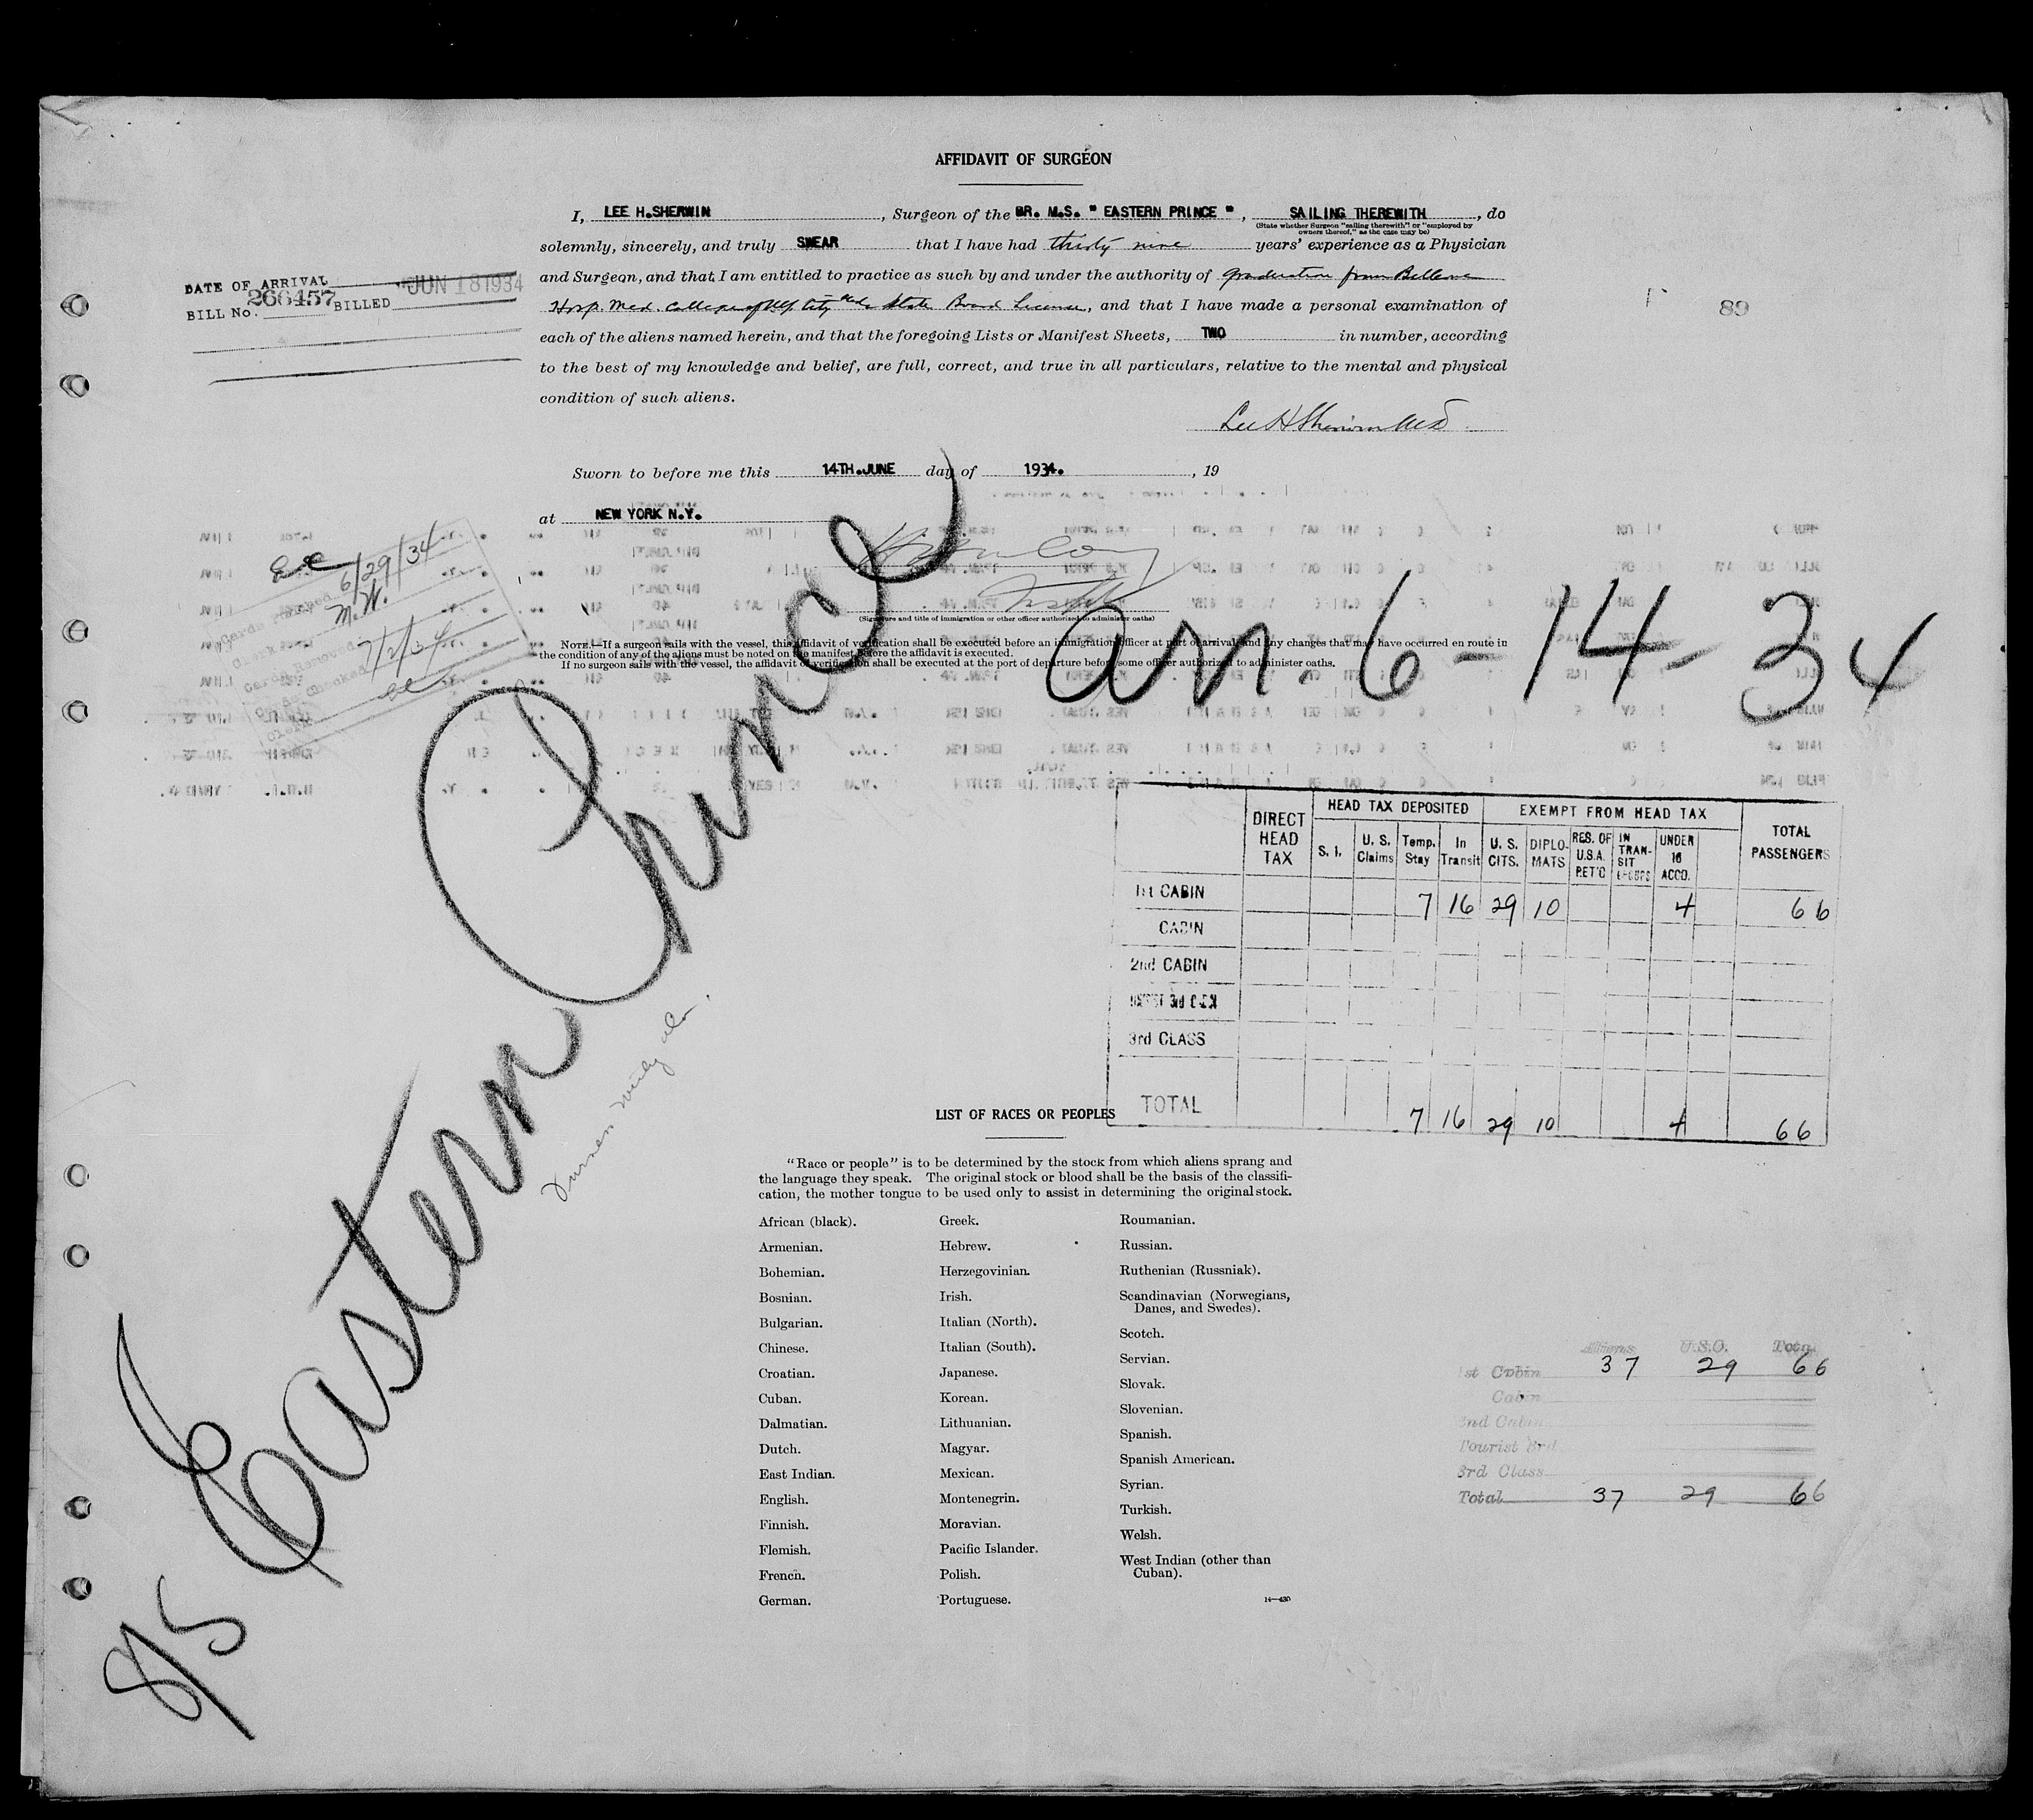 AFFIDAVIT OF SURGEON
I, LEE H.SHERWIN, Surgeon of the BR. M.S. " EASTERN PRINCE ", SAILING THEREWITH, do
(State whether Surgeon "sailing therewith" or "employed by
owners thereof," as the case may be)
solemnly, sincerely, and truly SWEAR that I have had thirty nine years' experience as a Physician
and Surgeon, and that I am entitled to practice as such by and under the authority of graduation from Bellevue
Hosp. Med. College of N.Y. City State Board License, and that I have made a personal examination of
each of the aliens named herein, and that the foregoing Lists or Manifest Sheets, TWO in number, according
to the best of my knowledge and belief, are full, correct, and true in all particulars, relative to the mental and physical
condition of such aliens.
Lee H Sherwin MD
Sworn to before me this 14TH.JUNE day of 1934. , 19
at NEW YORK N.Y.
(Signature and title of immigration or other officer authorized to administer oaths)
NOTE.—If a surgeon sails with the vessel, this affidavit of verification shall be executed before an immigration officer at port of arrival and any changes that may have occurred en route in
the condition of any of the aliens must be noted on the manifest before the affidavit is executed.
If no surgeon sails with the vessel, the affidavit of verification shall be executed at the port of departure before some officer authorized to administer oaths.
DATE OF ARRIVAL JUN 18 1934
BILL No. 266457 BILLED
89
6/29/34
M.W.
7/2/34
S/S Eastern Prince
arr. 6-14-34
DIRECT HEAD TAX
HEAD TAX DEPOSITED
EXEMPT FROM HEAD TAX
TOTAL PASSENGERS
S. I. U. S. Claims Temp. Stay In Transit U. S. CITS. DIPLO-MATS RES. OF U.S.A. RET'G IN TRAN-SIT GROUPS UNDER 16 ACCO.
1st CABIN 7 16 29 10 4 66
CABIN
2nd CABIN
3rd CLASS
TOTAL 7 16 29 10 4 66
LIST OF RACES OR PEOPLES
"Race or people" is to be determined by the stock from which aliens sprang and
the language they speak. The original stock or blood shall be the basis of the classifi-
cation, the mother tongue to be used only to assist in determining the original stock.
African (black).
Armenian.
Bohemian.
Bosnian.
Bulgarian.
Chinese.
Croatian.
Cuban.
Dalmatian.
Dutch.
East Indian.
English.
Finnish.
Flemish.
French.
German.
Greek.
Hebrew.
Herzegovinian.
Irish.
Italian (North).
Italian (South).
Japanese.
Korean.
Lithuanian.
Magyar.
Mexican.
Montenegrin.
Moravian.
Pacific Islander.
Polish.
Portuguese.
Roumanian.
Russian.
Ruthenian (Russniak).
Scandinavian (Norwegians,
Danes, and Swedes).
Scotch.
Servian.
Slovak.
Slovenian.
Spanish.
Spanish American.
Syrian.
Turkish.
Welsh.
West Indian (other than
Cuban).
14—430
Aliens U.S.C. Total
1st Cabin 37 29 66
Cabin
2nd Cabin
Tourist 3rd
3rd Class
Total 37 29 66